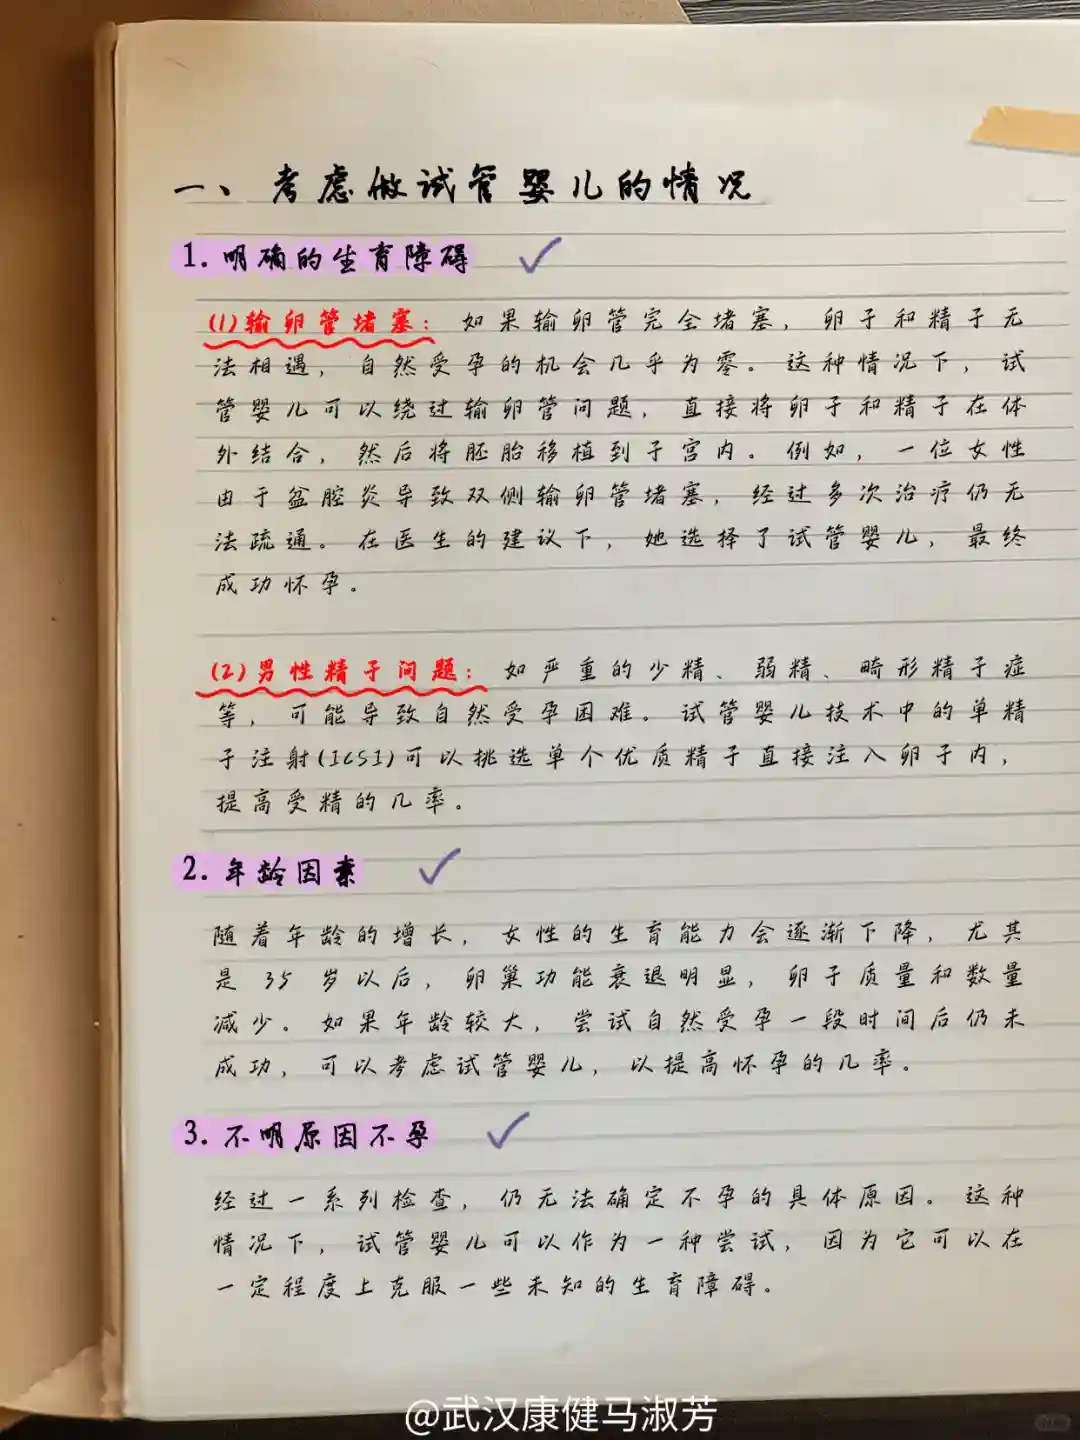 一、考虑做试管婴儿的情况
1.明确的生育障碍
(1)输卵管堵塞：如果输卵管完全堵塞，卵子和精子无
法相遇，自然受孕的机会几乎为零。这种情况下，试
管婴儿可以绕过输卵管问题，直接将卵子和精子在体
外结合，然后将胚胎移植到子宫内。例如，一位女性
由于盆腔炎导致双侧输卵管堵塞，经过多次治疗仍无
法疏通。在医生的建议下，她选择了试管婴儿，最终
成功怀孕。
(2)男性精子问题：如严重的少精、弱精、畸形精子症
等，可能导致自然受孕困难。试管婴儿技术中的单精
子注射(ICSI)可以挑选单个优质精子直接注入卵子内，
提高受精的几率。
2.年龄因素
随着年龄的增长，女性的生育能力会逐渐下降，尤其
是 35 岁以后，卵巢功能衰退明显，卵子质量和数量
减少。如果年龄较大，尝试自然受孕一段时间后仍未
成功，可以考虑试管婴儿，以提高怀孕的几率。
3.不明原因不孕
经过一系列检查，仍无法确定不孕的具体原因。这种
情况下，试管婴儿可以作为一种尝试，因为它可以在
一定程度上克服一些未知的生育障碍。
@武汉康健马淑芳